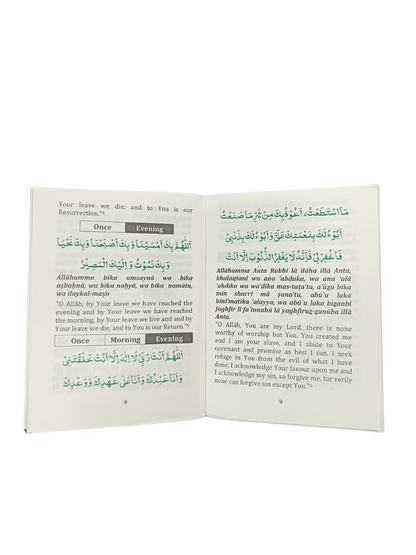 Your leave we die, and to You is our
Resurrection."⁶
Once Evening
اَللّٰهُمَّ بِكَ أَمْسَيْنَا وَبِكَ أَصْبَحْنَا وَبِكَ نَحْيَا
وَبِكَ نَمُوْتُ وَإِلَيْكَ الْمَصِيْرُ
Allāhumma bika amsaynā wa bika
aṣbaḥnā, wa bika naḥya, wa bika namūtu,
wa ilaykal-maṣīr
"O Allāh, by Your leave we have reached the
evening and by Your leave we have reached
the morning, by Your leave we live and by
Your leave we die, and to You is our Return."⁷
Once Morning Evening
اَللّٰهُمَّ أَنْتَ رَبِّيْ لَا إِلٰهَ إِلَّا أَنْتَ خَلَقْتَنِيْ
وَأَنَا عَبْدُكَ وَأَنَا عَلَى عَهْدِكَ وَوَعْدِكَ
8
مَا اسْتَطَعْتُ، أَعُوْذُ بِكَ مِنْ شَرِّ مَا صَنَعْتُ
أَبُوْءُ لَكَ بِنِعْمَتِكَ عَلَيَّ وَأَبُوْءُ لَكَ بِذَنْبِيْ
فَاغْفِرْ لِيْ فَإِنَّهُ لَا يَغْفِرُ الذُّنُوْبَ إِلَّا أَنْتَ
Allāhumma Anta Rabbī lā ilāha illā Anta,
khalaqtanī wa ana 'abduka, wa ana 'alā
'ahdika wa wa'dika mas-taṭa'tu, a'ūẓu bika
min sharri mā ṣana'tu, abū'u laka
bini'matika 'alayya, wa abū'u laka biẓambī
faghfir lī fa innahū lā yaghfiruẓ-ẓunūba illā
Anta.
"O Allāh, You are my Lord, there is none
worthy of worship but You. You created me
and I am your slave, and I abide to Your
covenant and promise as best I can. I seek
refuge in You from the evil of what I have
done. I acknowledge Your favour upon me and
I acknowledge my sin, so forgive me, for verily
none can forgive sin except You."⁸
9